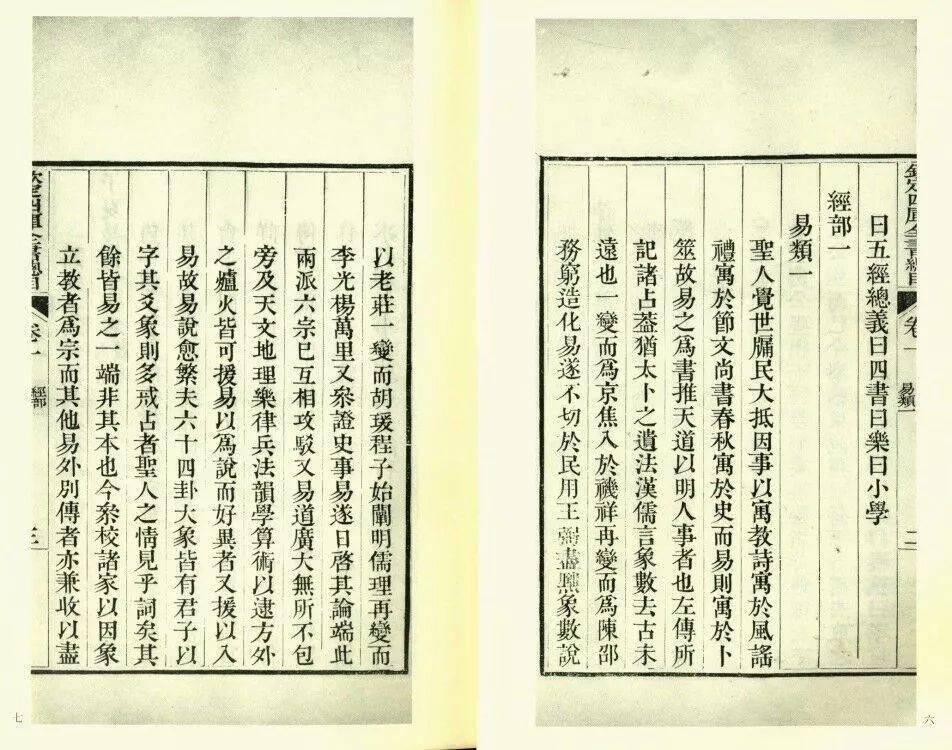 欽定四庫全書總目 卷一 易類一 二
曰五經總義曰四書曰樂曰小學
經部一
易類一
聖人覺世牖民大抵因事以寓教詩寓於風謠
禮寓於節文尚書春秋寓於史而易則寓於卜
筮故易之爲書推天道以明人事者也左傳所
記諸占葢猶太卜之遺法漢儒言象數去古未
遠也一變而爲京焦入於禨祥再變而爲陳邵
務窮造化易遂不切於民用王弼盡黜象數說
六
以老莊一變而胡瑗程子始闡明儒理再變而
李光楊萬里又叅證史事易遂日啓其論端此
兩派六宗已互相攻駁又易道廣大無所不包
旁及天文地理樂律兵法韻學算術以逮方外
之爐火皆可援易以爲說而好異者又援以入
易故易說愈繁夫六十四卦大象皆有君子以
字其爻象則多戒占者聖人之情見乎詞矣其
餘皆易之一端非其本也今叅校諸家以因象
立教者爲宗而其他易外別傳者亦兼收以盡
欽定四庫全書總目 卷一 經部 三
七